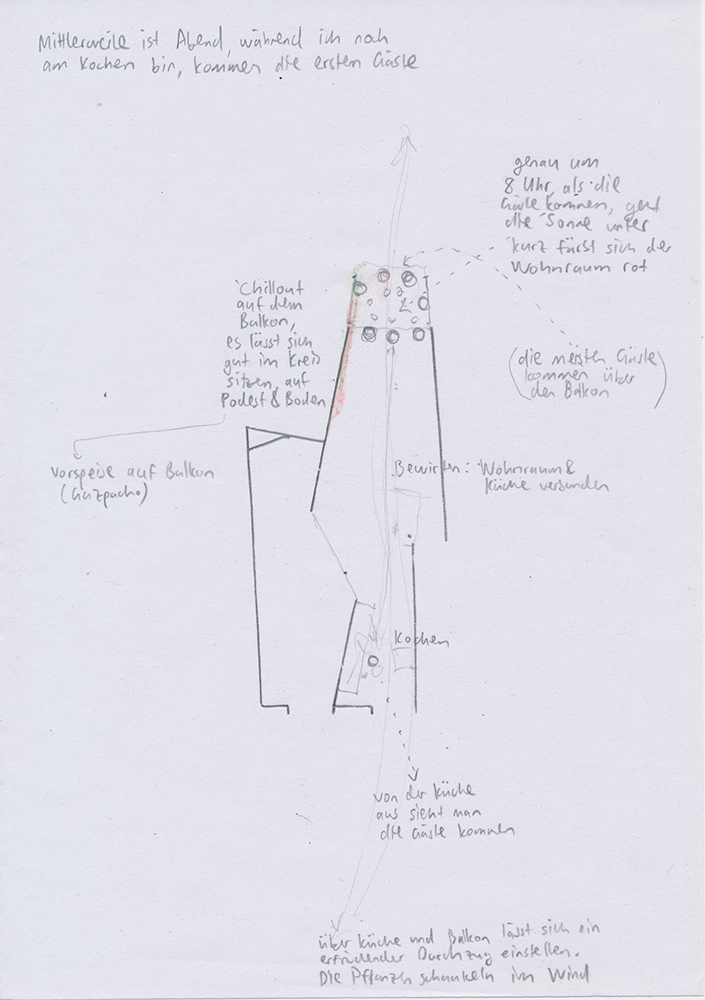 Mittlerweile ist Abend, während ich noch
am Kochen bin, kommen die ersten Gäste
genau um
8 Uhr, als die
Gäste kommen, geht
die Sonne unter
kurz färbt sich der
Wohnraum rot
Chillout
auf dem
Balkon,
es lässt sich
gut im Kreis
sitzen, auf
Podest & Boden
(die meisten Gäste
kommen über
den Balkon)
Vorspeise auf Balkon
(Gazpacho)
Bewirten: Wohnraum &
Küche verbunden
Kochen
von der Küche
aus sieht man
die Gäste kommen
über Küche und Balkon lässt sich ein
Durchzug einstellen.
Die Pflanzen schaukeln im Wind